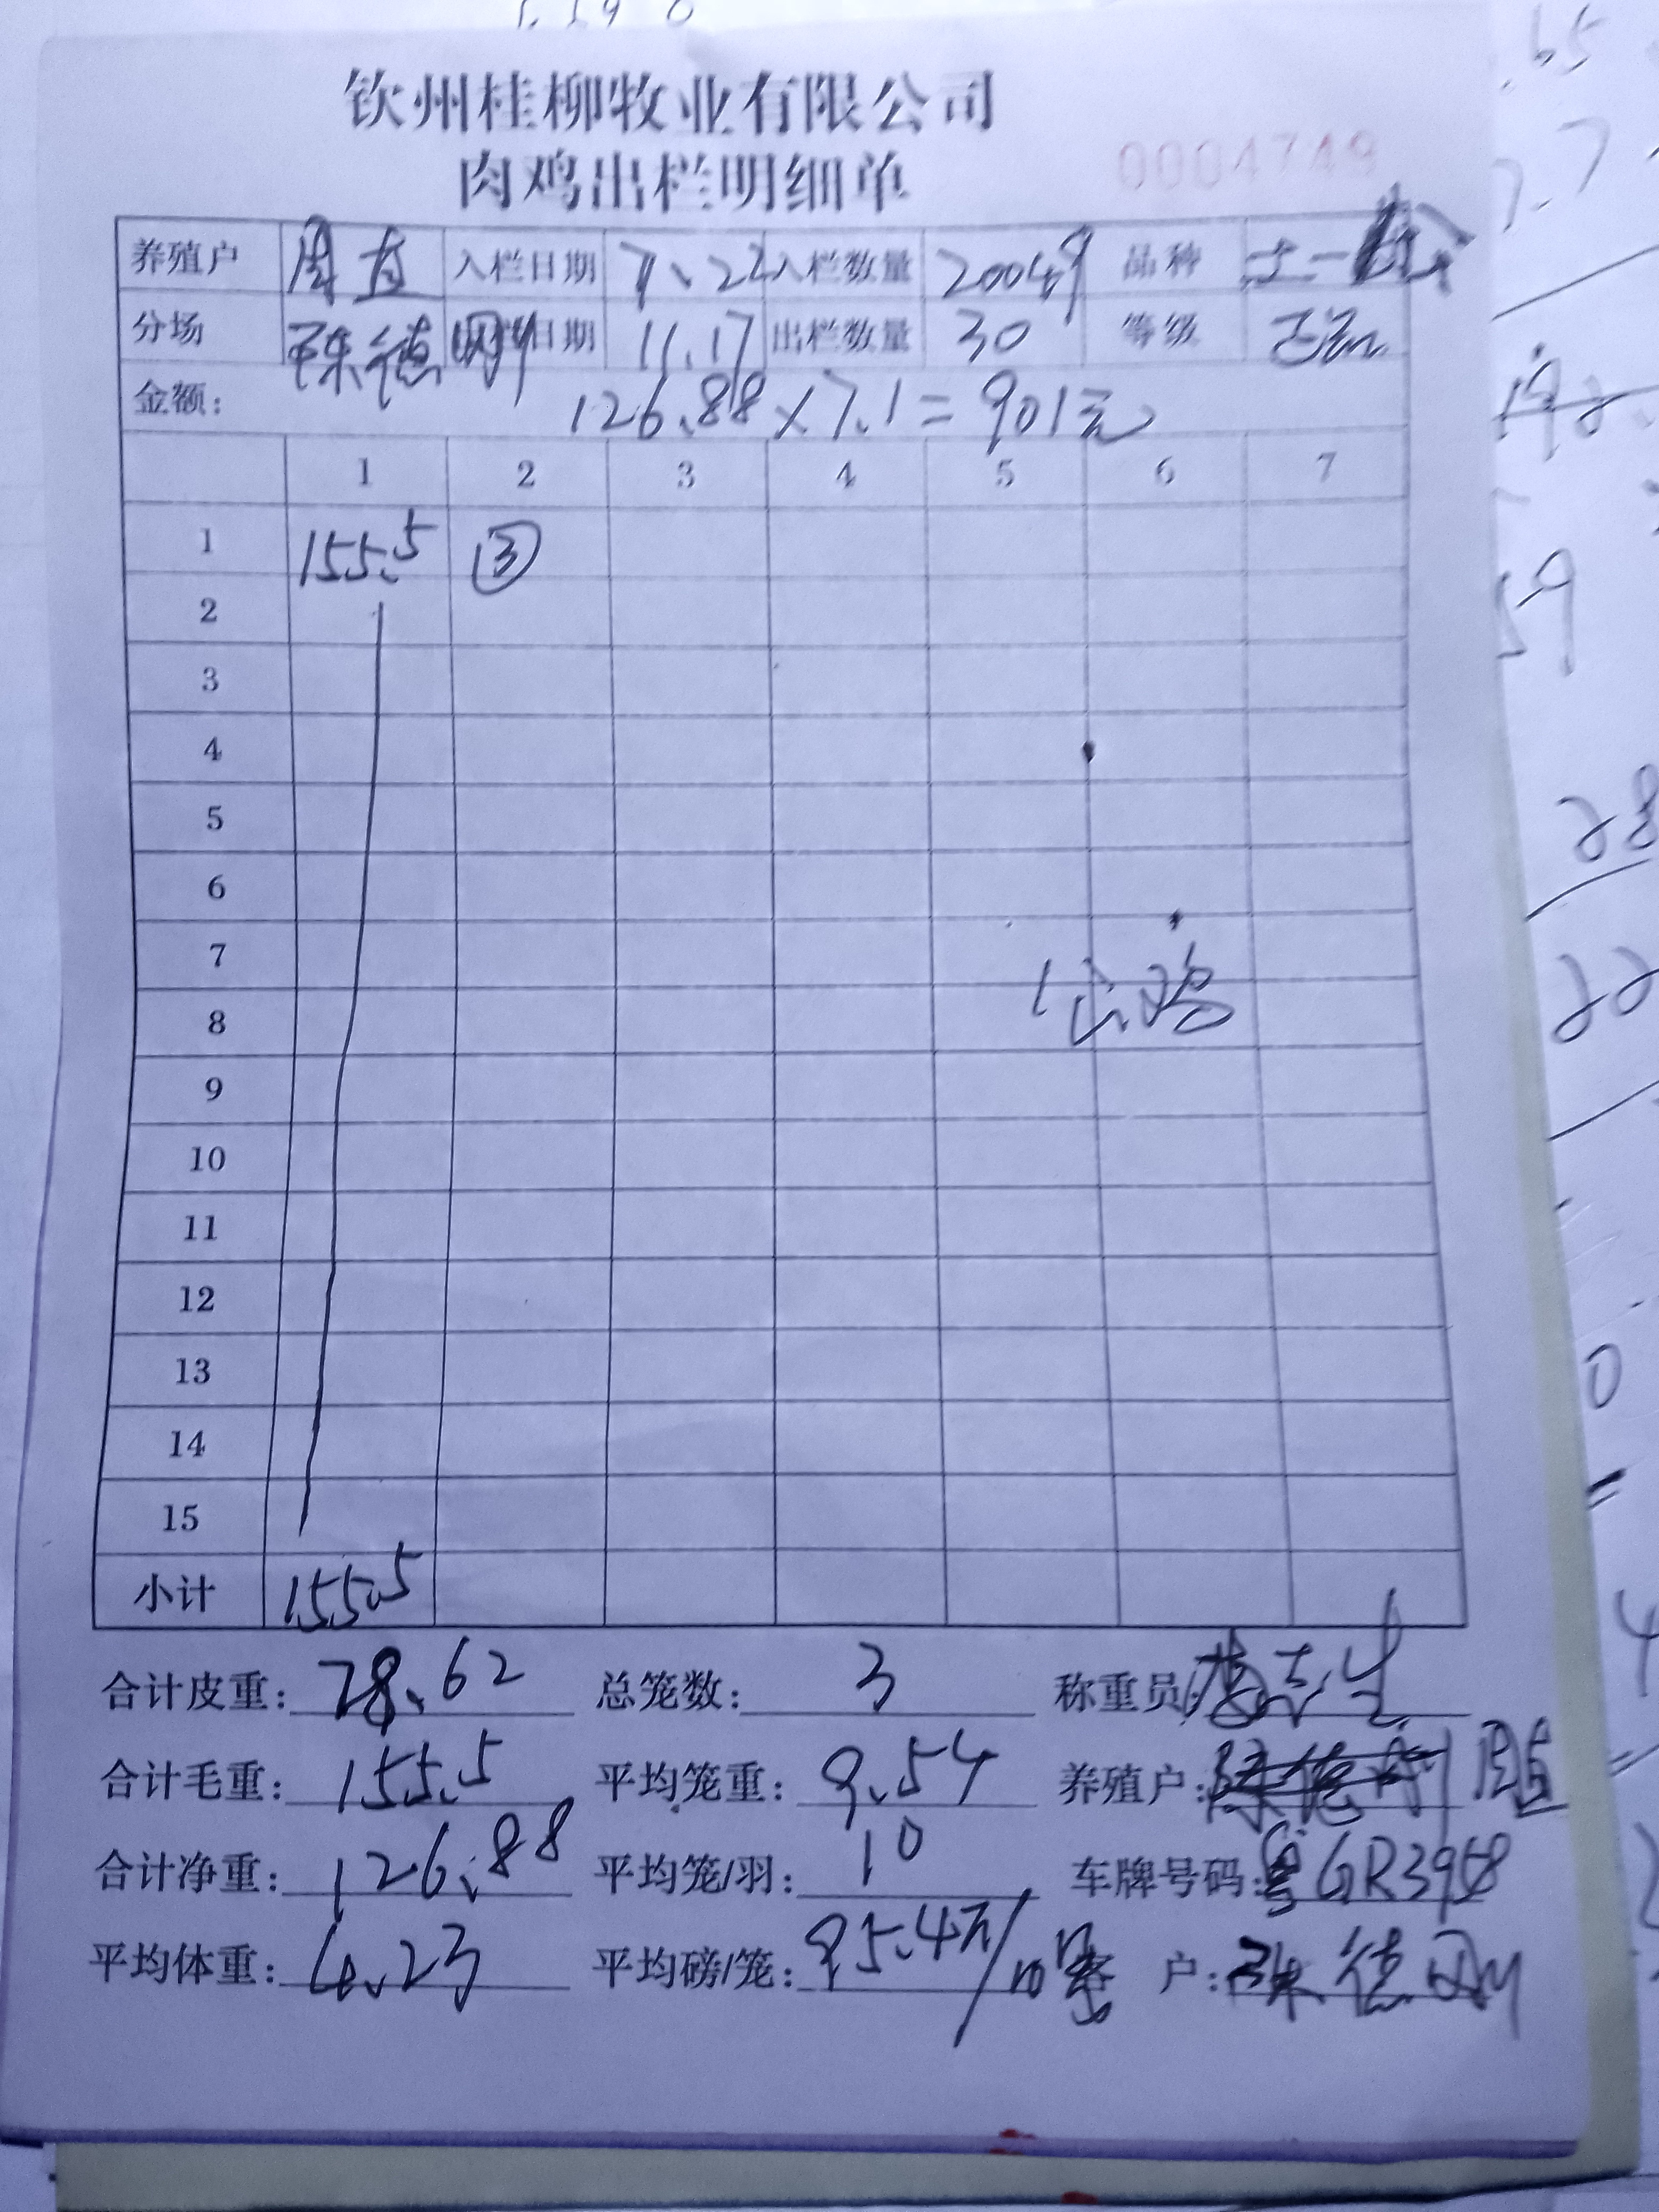 钦州桂柳牧业有限公司
肉鸡出栏明细单 0004749
养殖户 周直 入栏日期 7、22 入栏数量 20049 品种 土一
分场 陈德刚 日期 11.17 出栏数量 30 等级 正品
金额: 126.88×7.1=901元
1 2 3 4 5 6 7
1 155.5 ③
2
3
4
5
6
7
公鸡
8
9
10
11
12
13
14
15
小计 155.5
合计皮重: 28.62 总笼数: 3 称重员:
合计毛重: 155.5 平均笼重: 9.54 养殖户:
合计净重: 126.88 平均笼/羽: 10 车牌号码: 粤GR3958
平均体重: 4.23 平均磅/笼: 95.4 客 户: 陈德刚